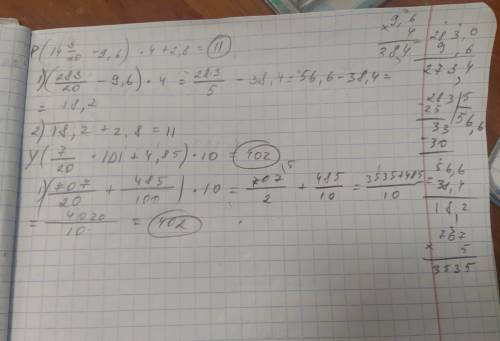 P(14 3/20 - 9,6) · 4 + 2,8 = 11
1) (283/20 - 9,6) · 4 = 283/5 - 38,4 = 56,6 - 38,4 =
= 18,2
2) 18,2 + 2,8 = 11
У(7/20 · 101 + 4,85) · 10 = 402
1) (707/20 + 485/100) · 10 = 707/2 + 485/10 = 3535+485/10
= 4020/10 = 402
9,6
× 4
38,4
283,0
9,6
273,4
283 | 5
25 | 56,6
33
30
56,6
- 38,4
18,2
707
× 5
3535